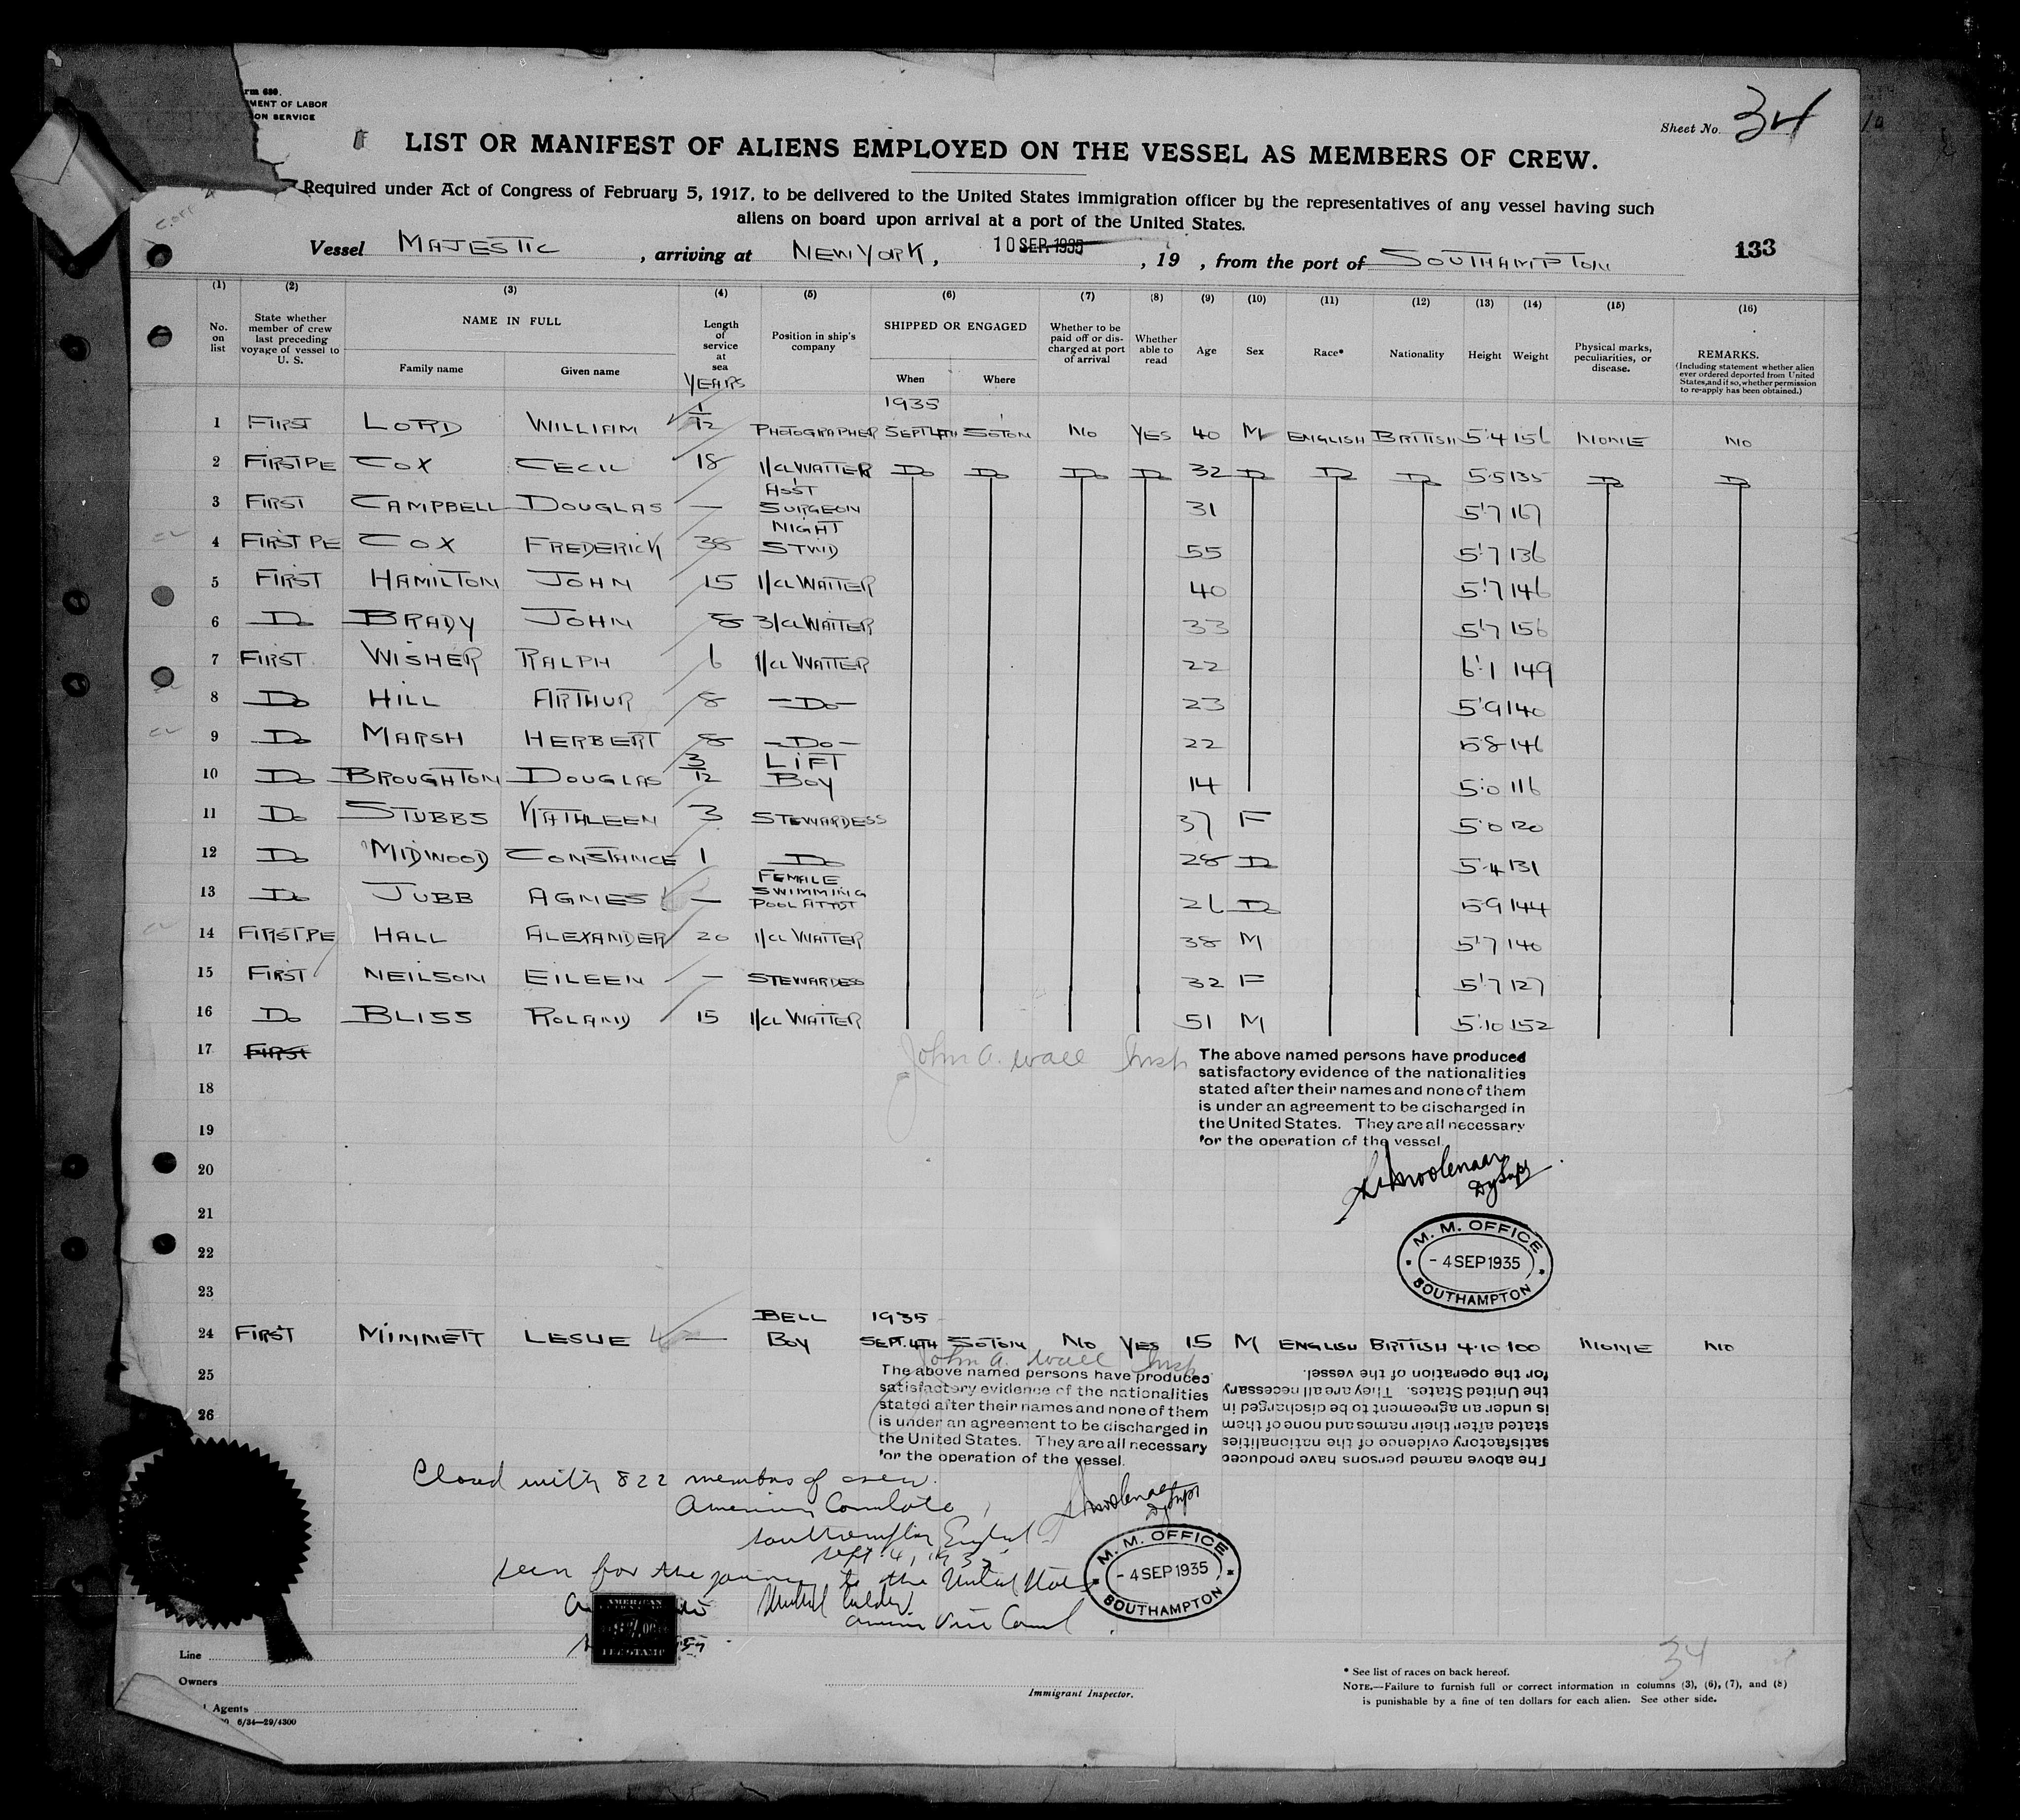 rm 680.
MENT OF LABOR
ON SERVICE
Sheet No. 34
LIST OR MANIFEST OF ALIENS EMPLOYED ON THE VESSEL AS MEMBERS OF CREW.
Required under Act of Congress of February 5, 1917, to be delivered to the United States immigration officer by the representatives of any vessel having such
aliens on board upon arrival at a port of the United States.
Vessel MAJESTIC , arriving at NEW YORK, 10 SEP. 1935 , 19 , from the port of SOUTHAMPTON 133
(1) (2) (3) (4) (5) (6) (7) (8) (9) (10) (11) (12) (13) (14) (15) (16)
No. on list State whether member of crew last preceding voyage of vessel to U. S. NAME IN FULL Length of service at sea Position in ship's company SHIPPED OR ENGAGED Whether to be paid off or discharged at port of arrival Whether able to read Age Sex Race* Nationality Height Weight Physical marks, peculiarities, or disease. REMARKS. (Including statement whether alien ever ordered deported from United States, and if so, whether permission to re-apply has been obtained.)
Family name Given name YEARS When Where
1935
1 FIRST LORD WILLIAM 1/12 PHOTOGRAPHER SEPT 4TH SOTON NO YES 40 M ENGLISH BRITISH 5'4 156 NONE NO
2 FIRST PE COX CECIL 18 1/CL WAITER DO DO DO DO 32 DO DO DO 5'5 135 DO DO
3 FIRST CAMPBELL DOUGLAS — ASST SURGEON 31 5'7 167
4 FIRST PE COX FREDERICK 38 NIGHT STWD 55 5'7 136
5 FIRST HAMILTON JOHN 15 1/CL WAITER 40 5'7 146
6 DO BRADY JOHN 8 3/CL WAITER 33 5'7 156
7 FIRST WISHER RALPH 6 1/CL WAITER 22 6'1 149
8 DO HILL ARTHUR 8 -DO- 23 5'9 140
9 DO MARSH HERBERT 8 -DO- 22 5'8 146
10 DO BROUGHTON DOUGLAS 3/12 LIFT BOY 14 5'0 116
11 DO STUBBS KATHLEEN 3 STEWARDESS 37 F 5'0 120
12 DO MIDWOOD CONSTANCE 1 DO 28 DO 5'4 131
13 DO JUBB AGNES — FEMALE SWIMMING POOL ATTDT 26 DO 5'9 144
14 FIRST.PE HALL ALEXANDER 20 1/CL WAITER 38 M 5'7 140
15 FIRST NEILSON EILEEN — STEWARDESS 32 F 5'7 127
16 DO BLISS ROLAND 15 1/CL WAITER 51 M 5'10 152
17 FIRST
John A. Wall Insp
The above named persons have produced
satisfactory evidence of the nationalities
stated after their names and none of them
is under an agreement to be discharged in
the United States. They are all necessary
for the operation of the vessel.
18
19
20
21
22
23
M. M. OFFICE
- 4 SEP 1935
SOUTHAMPTON
BELL 1935
24 FIRST MINNETT LESLIE — BOY SEPT. 4TH SOTON NO YES 15 M ENGLISH BRITISH 4'10 100 NONE NO
25
26
John A. Wall Insp
The above named persons have produced
satisfactory evidence of the nationalities
stated after their names and none of them
is under an agreement to be discharged in
the United States. They are all necessary
for the operation of the vessel.
The above named persons have produced
satisfactory evidence of the nationalities
stated after their names and none of them
is under an agreement to be discharged in
the United States. They are all necessary
for the operation of the vessel.
Closed with 822 members of crew.
American Consulate,
Southampton, England
Sept. 4, 1935
Seen for the journey to the United States
American Vice Consul
M. M. OFFICE
- 4 SEP 1935
SOUTHAMPTON
AMERICAN
FEE STAMP
Line
Owners
Agents
6/34—29/4300
Immigrant Inspector.
34
* See list of races on back hereof.
NOTE.—Failure to furnish full or correct information in columns (3), (6), (7), and (8)
is punishable by a fine of ten dollars for each alien. See other side.